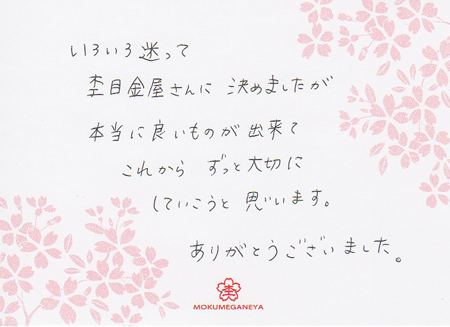 いろいろ迷って
杢目金屋さんに 決めましたが
本当に良いものが出来て
これから ずっと大切に
していこうと思います。
ありがとうございました。
杢
MOKUMEGANEYA